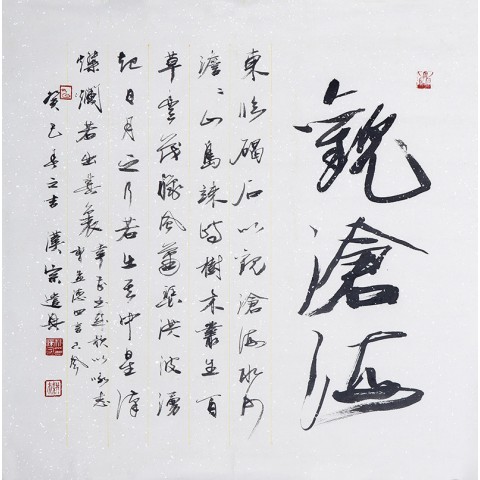 觀滄海
東臨碣石以觀滄海水何
澹〻山島竦峙樹木叢生百
草豐茂秋風蕭瑟洪波湧
起日月之行若出其中星漢
燦爛若出其裏幸甚至哉歌以詠志
孟德四言
癸巳春之吉漢宗遣興